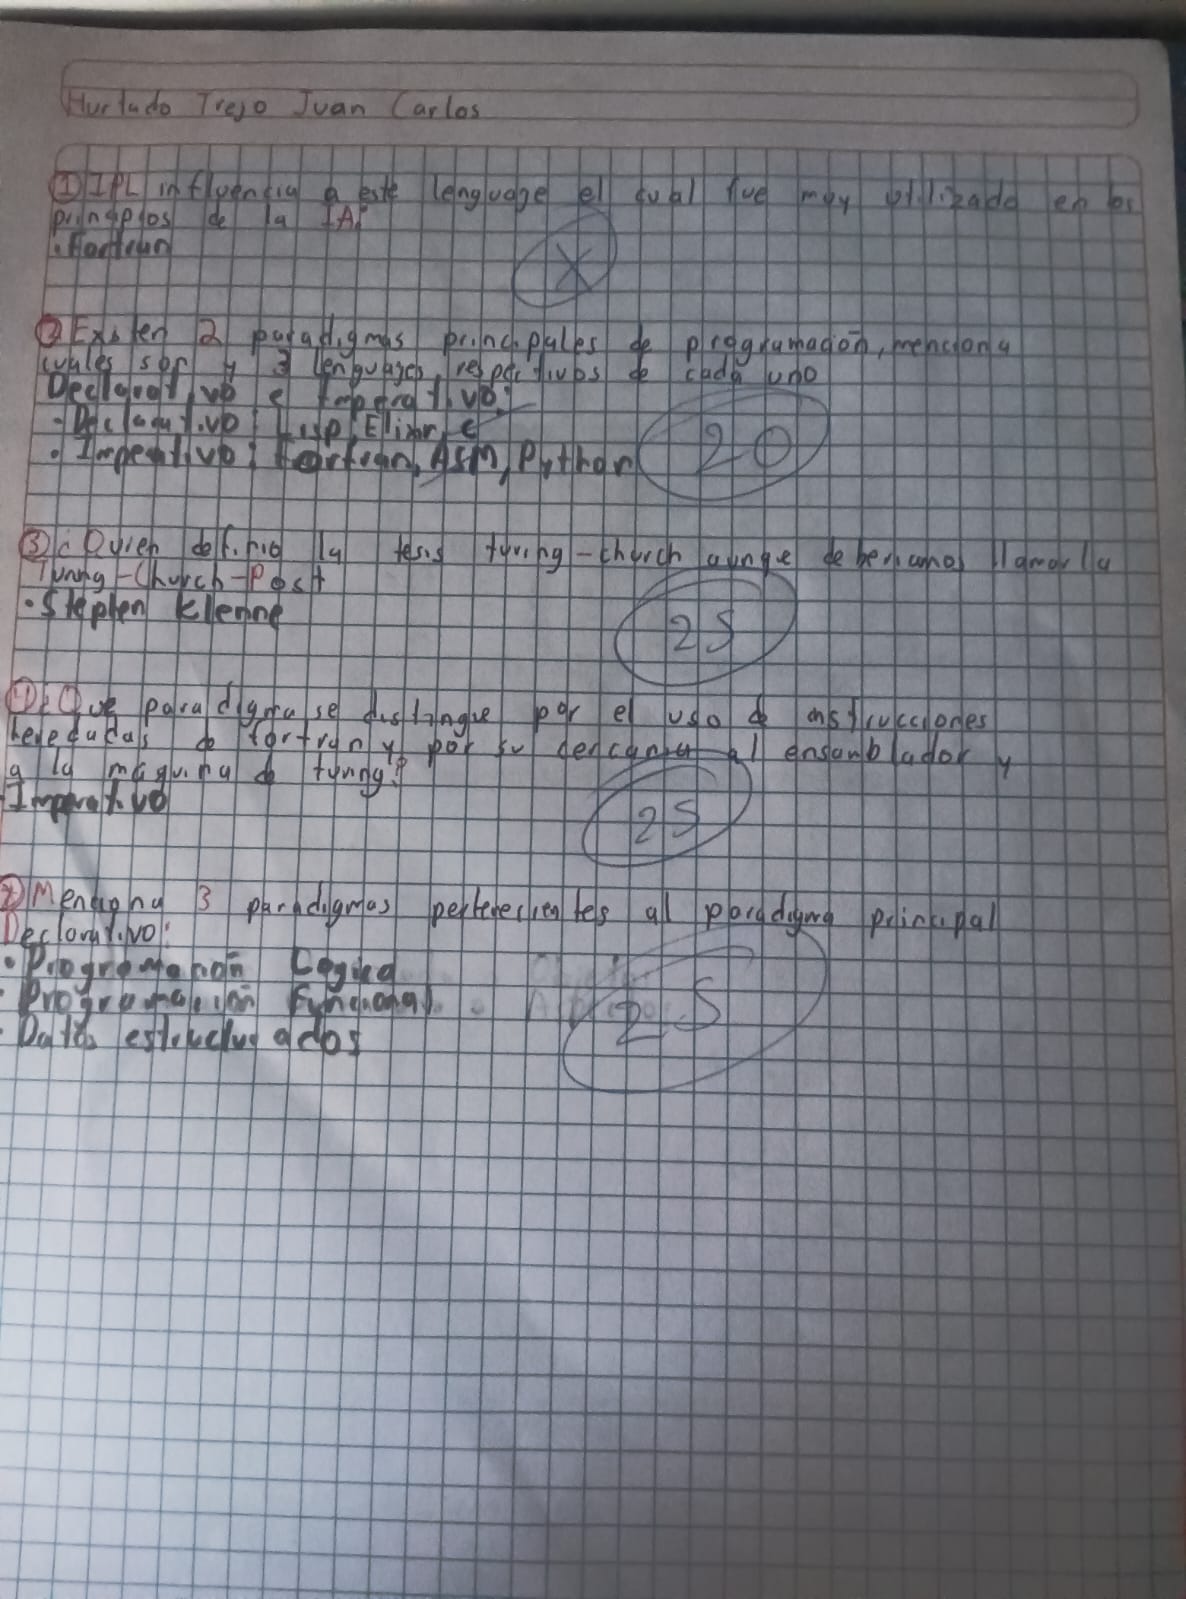 Hurtado Trejo Juan Carlos
① IPL influencia a este lenguage el cual fue muy utilizado en los
principios de la IA:
• Fortran
X
② Existen 2 paradigmas principales de programación, menciona
cuales son y 3 lenguages respectivos de cada uno
Declarativo e Imperativo:
• Declarativo: Lisp, Elixir, C
• Imperativo: Fortran, ASM, Python
20
③ ¿Quien definio la tesis tyring-church aunqe deberiamos llamarla
Turing-Church-Post
• Stephen Klenne
25
④ ¿Que paradigma se distingue por el uso de instrucciones
heredadas de fortran y por su cercania al ensanblador y
a la maquina de tyring?
Imperativo
25
Menciona 3 paradigmas pertenecientes al paradigma principal
Declarativo:
• Programación Logica
• Programación Funcional
• Datos estructurados
25